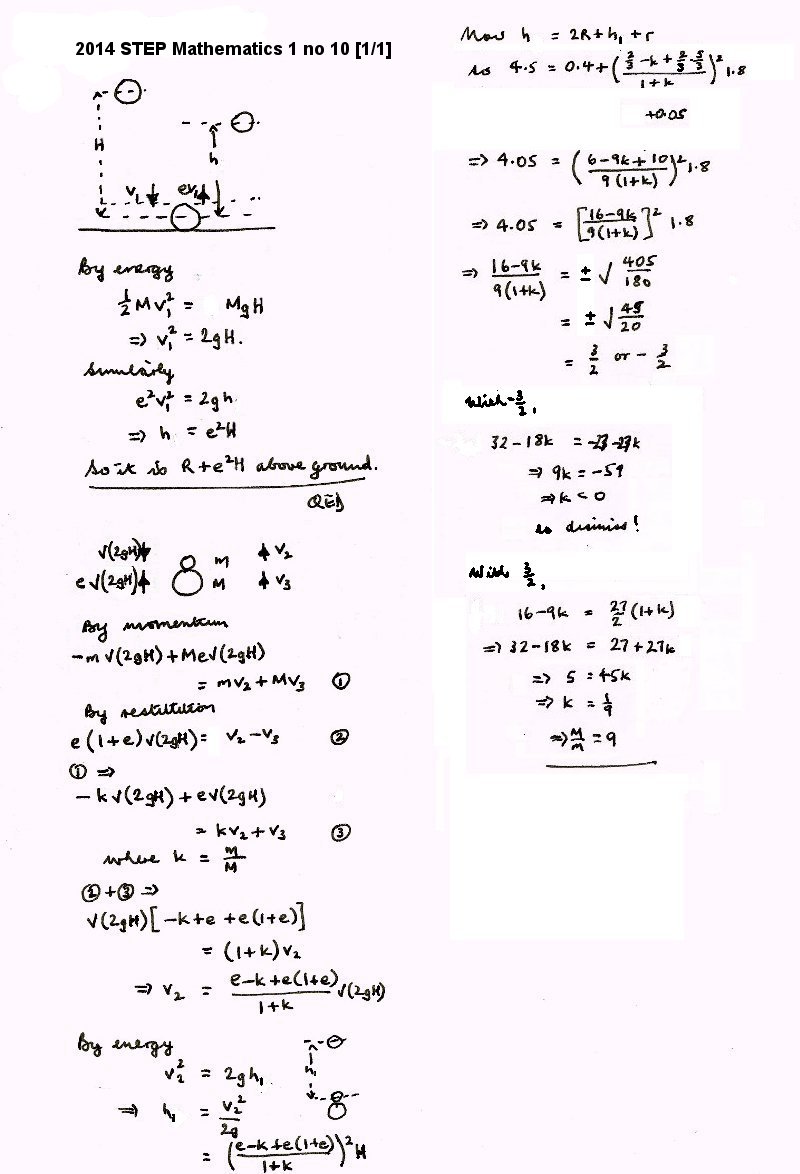 2014 STEP Mathematics 1 no 10 [1/1]
H
h
v₁
ev₁
By energy
½Mv₁² = MgH
⇒ v₁² = 2gH.
Similarly
e²v₁² = 2gh
⇒ h = e²H
So it is R+e²H above ground.
QED
√(2gH) m v₂
e√(2gH) M v₃
By momentum
-m√(2gH)+Me√(2gH)
= mv₂+Mv₃ ①
By restitution
e(1+e)√(2gH) = v₂-v₃ ②
① ⇒
-k√(2gH)+e√(2gH)
= kv₂+v₃ ③
where k = m/M
②+③ ⇒
√(2gH)[-k+e+e(1+e)]
= (1+k)v₂
⇒ v₂ = (e-k+e(1+e))/(1+k) √(2gH)
By energy
v₂² = 2gh₁
h₁
⇒ h₁ = v₂²/2g
= ((e-k+e(1+e))/(1+k))² H
Now h = 2R+h₁+r
so 4.5 = 0.4+((2/3-k+2/3·5/3)/(1+k))² 1.8
+0.05
⇒ 4.05 = ((6-9k+10)/(9(1+k)))² 1.8
⇒ 4.05 = [(16-9k)/(9(1+k))]² 1.8
⇒ (16-9k)/(9(1+k)) = ±√(405/180)
= ±√(45/20)
= 3/2 or -3/2
With -3/2,
32-18k = -27-27k
⇒ 9k = -59
⇒ k < 0
so dismiss!
With 3/2,
16-9k = 27/2 (1+k)
⇒ 32-18k = 27+27k
⇒ 5 = 45k
⇒ k = 1/9
⇒ M/m = 9